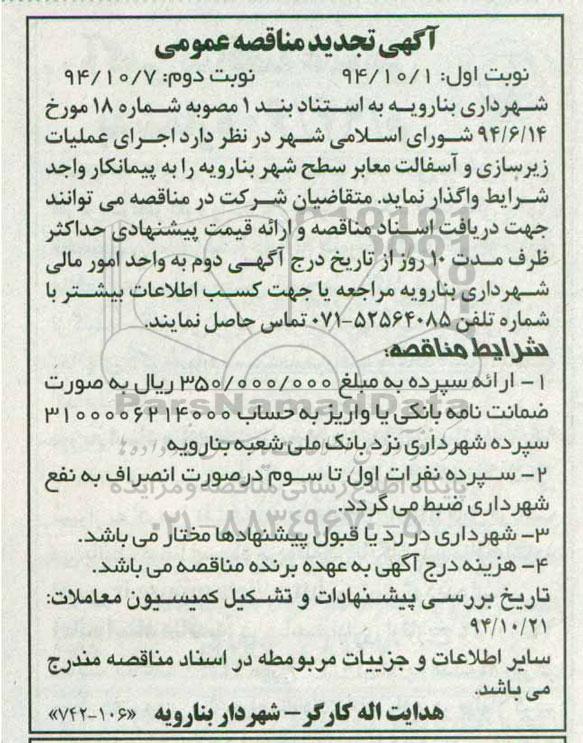 آگهی تجدید مناقصه عمومی
نوبت اول: ۹۴/۱۰/۱ نوبت دوم: ۹۴/۱۰/۷
شهرداری بنارویه به استناد بند ۱ مصوبه شماره ۱۸ مورخ
۹۴/۶/۱۴ شورای اسلامی شهر در نظر دارد اجرای عملیات
زیرسازی و آسفالت معابر سطح شهر بنارویه را به پیمانکار واجد
شرایط واگذار نماید. متقاضیان شرکت در مناقصه می توانند
جهت دریافت اسناد مناقصه و ارائه قیمت پیشنهادی حداکثر
ظرف مدت ۱۰ روز از تاریخ درج آگهی دوم به واحد امور مالی
شهرداری بنارویه مراجعه یا جهت کسب اطلاعات بیشتر با
شماره تلفن ۵۲۵۶۴۰۸۵-۰۷۱ تماس حاصل نمایند.
شرایط مناقصه:
۱- ارائه سپرده به مبلغ ۳۵۰/۰۰۰/۰۰۰ ریال به صورت
ضمانت نامه بانکی یا واریز به حساب ۳۱۰۰۰۰۶۴۱۴۰۰۰
سپرده شهرداری نزد بانک ملی شعبه بنارویه
۲- سپرده نفرات اول تا سوم درصورت انصراف به نفع
شهرداری ضبط می گردد.
۳- شهرداری در رد یا قبول پیشنهادها مختار می باشد.
۴- هزینه درج آگهی به عهده برنده مناقصه می باشد.
تاریخ بررسی پیشنهادات و تشکیل کمیسیون معاملات:
۹۴/۱۰/۲۱
سایر اطلاعات و جزییات مربوطه در اسناد مناقصه مندرج
می باشد.
هدایت اله کارگر- شهردار بنارویه «۱۰۶-۷۴۲»
ParsNamadData
پایگاه اطلاع رسانی مناقصه و مزایده
۰۲۱-۸۸۳۴۹۶۷۰-۵